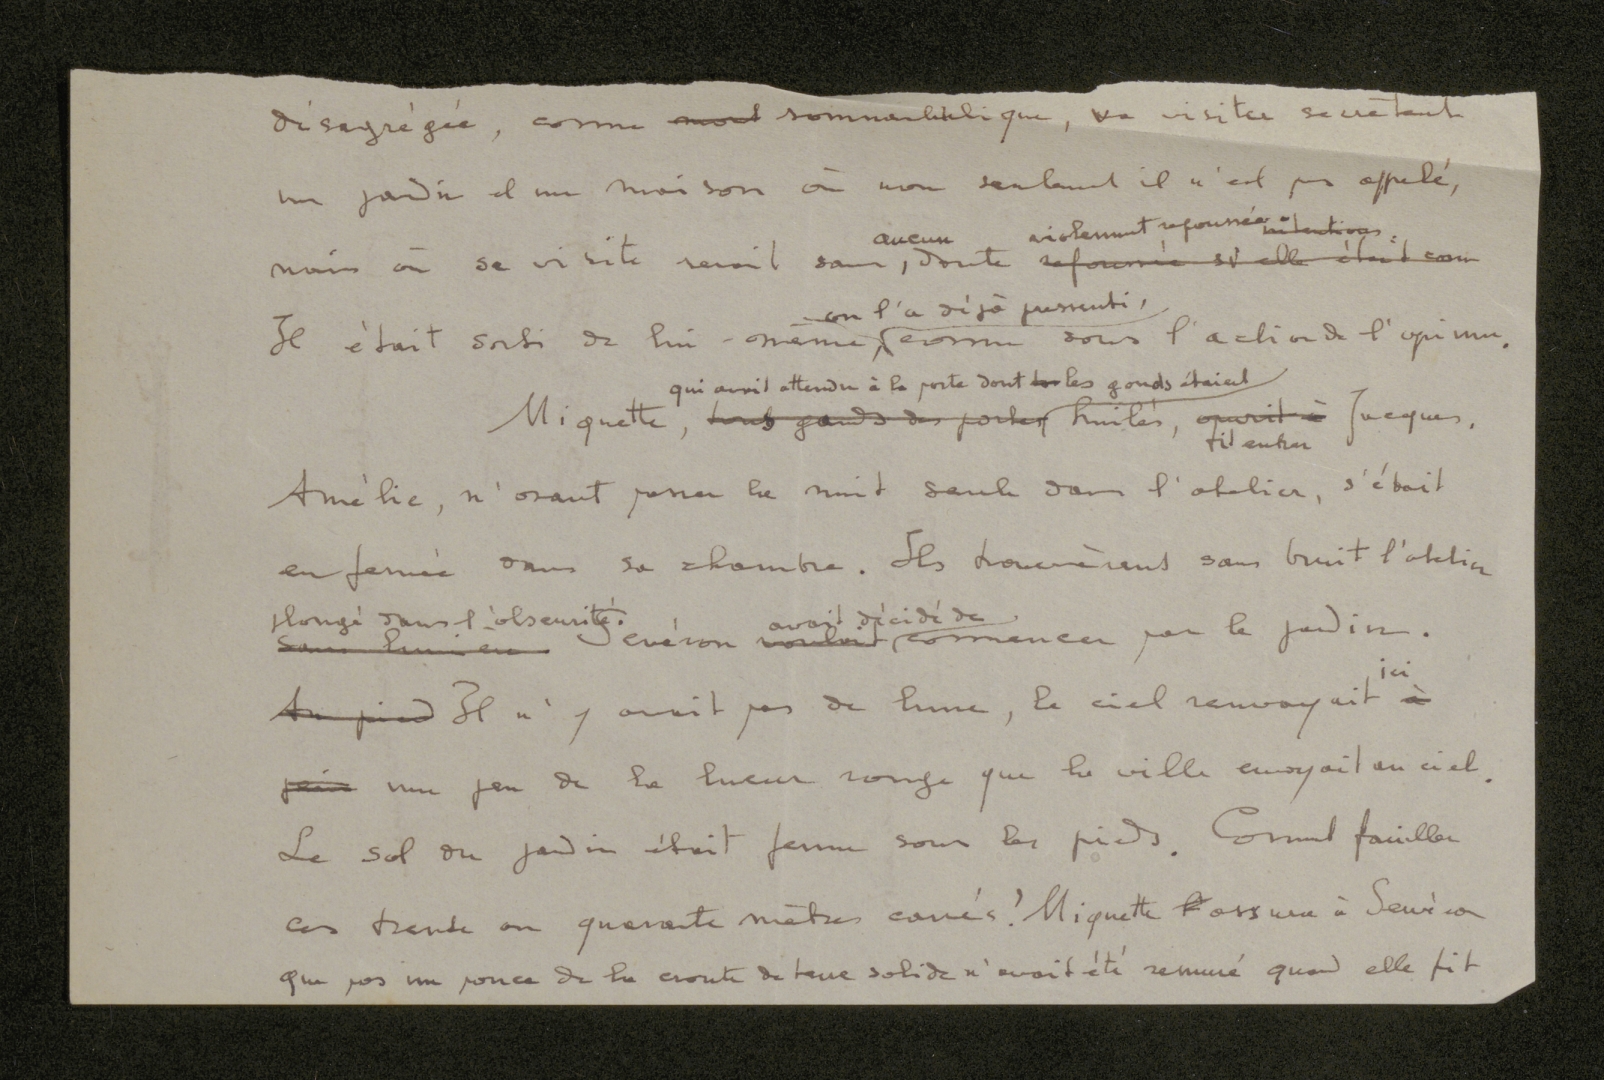 désagrégée, comme mort somnambulique, va visiter secrètement
un jardin et une maison où non seulement il n'est pas appelé,
aucun violemment repoussée intentions.
mais où sa visite serait sans, doute repoussée si elle était conn
on l'a déjà pressenti,
Il était sorti de lui-même, comme sous l'action de l'opium.
qui avait attendu à la porte dont les gonds étaient
Miquette, tous gonds des portes huilés, ouvrit à Jacques.
fit entrer
Amélie, n'osant passer la nuit seule dans l'atelier, s'était
enfermée dans sa chambre. Ils trouvèrent sans bruit l'atelier
plongé dans l'obscurité. avait décidé de
sans lumière Sevéron voulait commencer par le jardin.
ici
Au pied Il n'y avait pas de lune, le ciel renvoyait à
un peu de la lueur rouge que la ville envoyait au ciel.
Le sol du jardin était ferme sous les pieds. Comment fouiller
ces trente ou quarante mètres carrés? Miquette assura à Sevéron
que pas un pouce de la croute de terre solide n'avait été remué quand elle fit